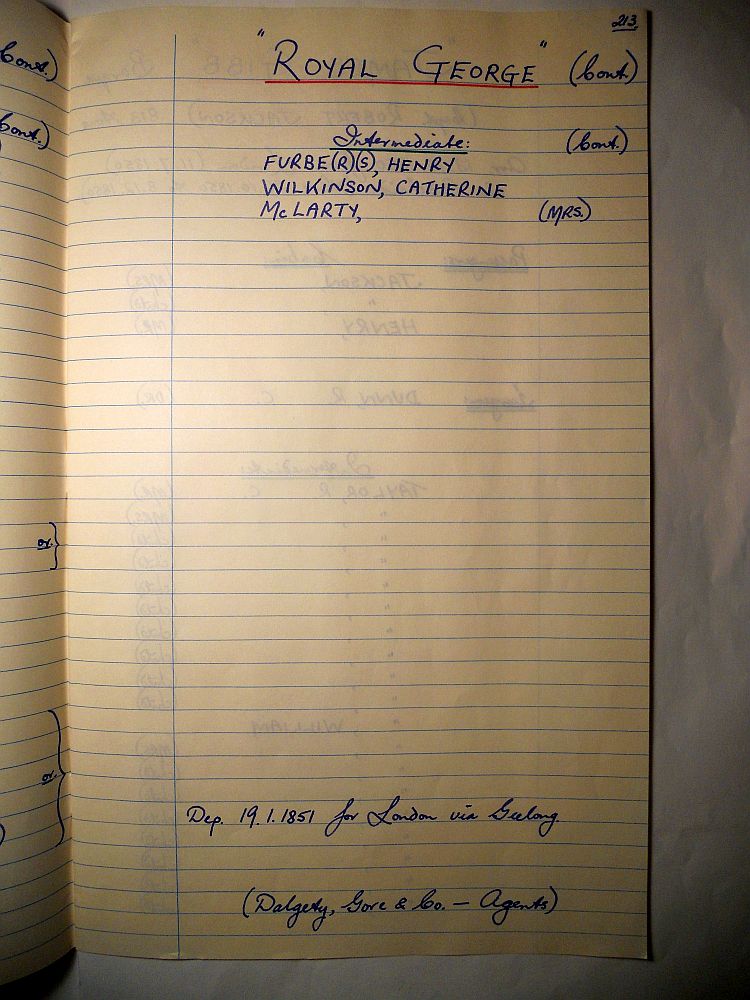 213.
"ROYAL GEORGE" (Cont.)
Intermediate: (Cont.)
FURBE(R)(S), HENRY
WILKINSON, CATHERINE
McLARTY, (MRS.)
Dep. 19.1.1851 for London via Geelong.
(Dalgety, Gore & Co. — Agents)
Cont.)
Cont.)
or.
or.